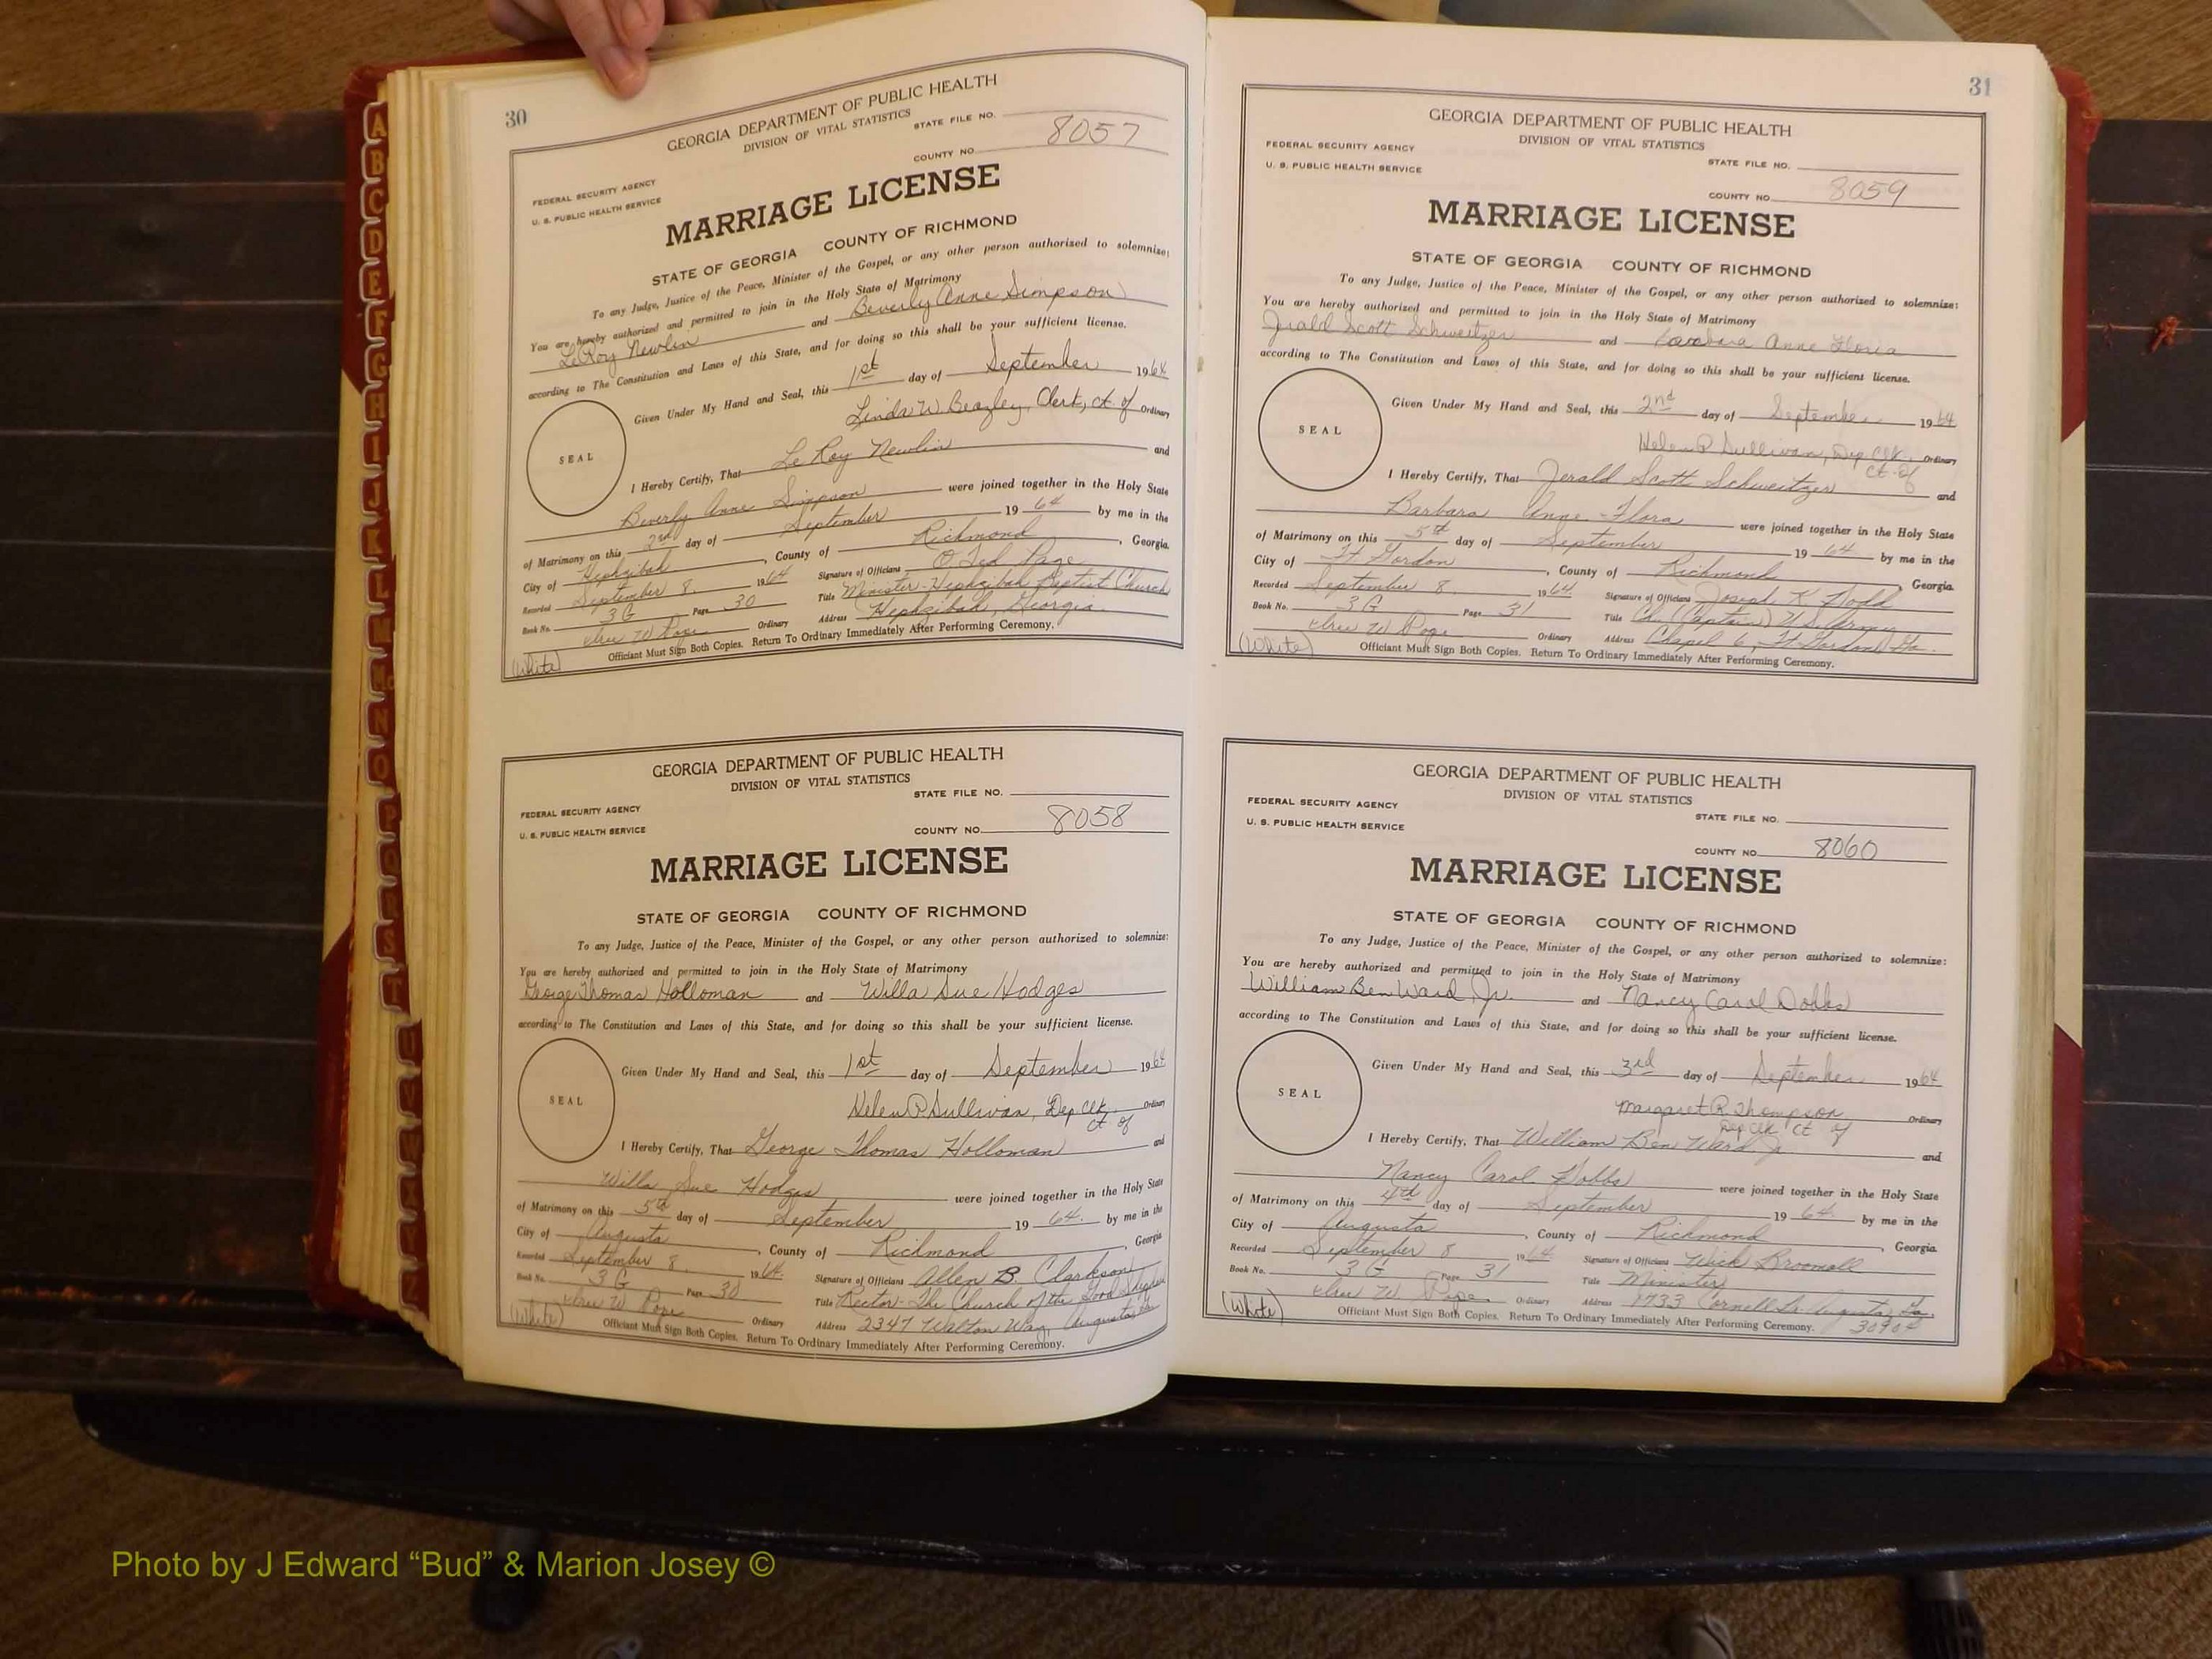 30
GEORGIA DEPARTMENT OF PUBLIC HEALTH
DIVISION OF VITAL STATISTICS
STATE FILE NO.
FEDERAL SECURITY AGENCY
U. S. PUBLIC HEALTH SERVICE
COUNTY NO. 8057
MARRIAGE LICENSE
STATE OF GEORGIA COUNTY OF RICHMOND
To any Judge, Justice of the Peace, Minister of the Gospel, or any other person authorized to solemnize:
You are hereby authorized and permitted to join in the Holy State of Matrimony
LeRoy Newlin and Beverly Anne Simpson
according to The Constitution and Laws of this State, and for doing so this shall be your sufficient license.
Given Under My Hand and Seal, this 1st day of September 1964
SEAL
Linda W Beazley, Clerk, Ct. of Ordinary
I Hereby Certify, That Le Roy Newlin and
Beverly Anne Simpson were joined together in the Holy State
of Matrimony on this 2nd day of September 19 64 by me in the
City of Hephzibah, County of Richmond, Georgia.
Recorded September 8, 1964 Signature of Officians O. Ted Page
Book No. 3G Page 30 Title Minister-Hephzibah Baptist Church
W Pope Ordinary Address Hephzibah, Georgia
(White) Officiant Must Sign Both Copies. Return To Ordinary Immediately After Performing Ceremony.
GEORGIA DEPARTMENT OF PUBLIC HEALTH
DIVISION OF VITAL STATISTICS
STATE FILE NO.
FEDERAL SECURITY AGENCY
U. S. PUBLIC HEALTH SERVICE
COUNTY NO. 8058
MARRIAGE LICENSE
STATE OF GEORGIA COUNTY OF RICHMOND
To any Judge, Justice of the Peace, Minister of the Gospel, or any other person authorized to solemnize:
You are hereby authorized and permitted to join in the Holy State of Matrimony
George Thomas Holloman and Willa Sue Hodges
according to The Constitution and Laws of this State, and for doing so this shall be your sufficient license.
Given Under My Hand and Seal, this 1st day of September 1964
SEAL
Helen P Sullivan, Dep Clk. Ordinary
Ct of
I Hereby Certify, That George Thomas Holloman and
Willa Sue Hodges were joined together in the Holy State
of Matrimony on this 5th day of September 19 64. by me in the
City of Augusta, County of Richmond, Georgia
Recorded September 8 1964. Signature of Officians Allen B. Clarkson
Book No. 3G Page 30 Title Rector-The Church of the Good Shepherd
W Pope Ordinary Address 2347 Walton Way, Augusta, Ga
(White) Officiant Must Sign Both Copies. Return To Ordinary Immediately After Performing Ceremony.
31
GEORGIA DEPARTMENT OF PUBLIC HEALTH
DIVISION OF VITAL STATISTICS
FEDERAL SECURITY AGENCY
STATE FILE NO.
U. S. PUBLIC HEALTH SERVICE
COUNTY NO. 8059
MARRIAGE LICENSE
STATE OF GEORGIA COUNTY OF RICHMOND
To any Judge, Justice of the Peace, Minister of the Gospel, or any other person authorized to solemnize:
You are hereby authorized and permitted to join in the Holy State of Matrimony
Jerald Scott Schweitzer and Barbara Anne Floria
according to The Constitution and Laws of this State, and for doing so this shall be your sufficient license.
Given Under My Hand and Seal, this 2nd day of September 1964
SEAL
Helen P Sullivan, Dep Clk. Ordinary
Ct. of
I Hereby Certify, That Jerald Scott Schweitzer and
Barbara Anne Flora were joined together in the Holy State
of Matrimony on this 5th day of September 19 64 by me in the
City of Ft. Gordon, County of Richmond, Georgia.
Recorded September 8 1964. Signature of Officians Joseph K.
Book No. 3G Page 31 Title Ch. (Captain) U.S. Army
W Pope Ordinary Address Chapel 6, Ft. Gordon, Ga.
(White) Officiant Must Sign Both Copies. Return To Ordinary Immediately After Performing Ceremony.
GEORGIA DEPARTMENT OF PUBLIC HEALTH
DIVISION OF VITAL STATISTICS
FEDERAL SECURITY AGENCY
STATE FILE NO.
U. S. PUBLIC HEALTH SERVICE
COUNTY NO. 8060
MARRIAGE LICENSE
STATE OF GEORGIA COUNTY OF RICHMOND
To any Judge, Justice of the Peace, Minister of the Gospel, or any other person authorized to solemnize:
You are hereby authorized and permitted to join in the Holy State of Matrimony
William Ben Ward, Jr. and Nancy Carol Dobbs
according to The Constitution and Laws of this State, and for doing so this shall be your sufficient license.
Given Under My Hand and Seal, this 3rd day of September 1964
SEAL
Margaret R. Thompson Ordinary
Dep Clk Ct of
I Hereby Certify, That William Ben Ward Jr and
Nancy Carol Dobbs were joined together in the Holy State
of Matrimony on this 4th day of September 19 64. by me in the
City of Augusta, County of Richmond, Georgia.
Recorded September 8 1964 Signature of Officians Wick Broomall
Book No. 3G Page 31 Title Minister
W Pope Ordinary Address 1733 Cornell Dr. Augusta, Ga.
30904
(White) Officiant Must Sign Both Copies. Return To Ordinary Immediately After Performing Ceremony.
A
B
C
D
E
F
G
H
I
J
K
L
M
Mc
N
O
P
Q
R
S
T
U
V
W
X
Y
Z
Photo by J Edward “Bud” & Marion Josey ©